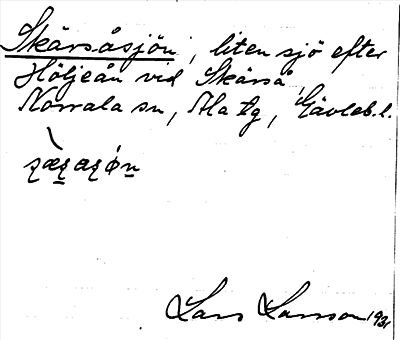 Skärsåsjön, liten sjö efter
Höljeån vid Skärså,
Norrala sn, Ala tg, Gävleb. l.
Lars Larsson 1931